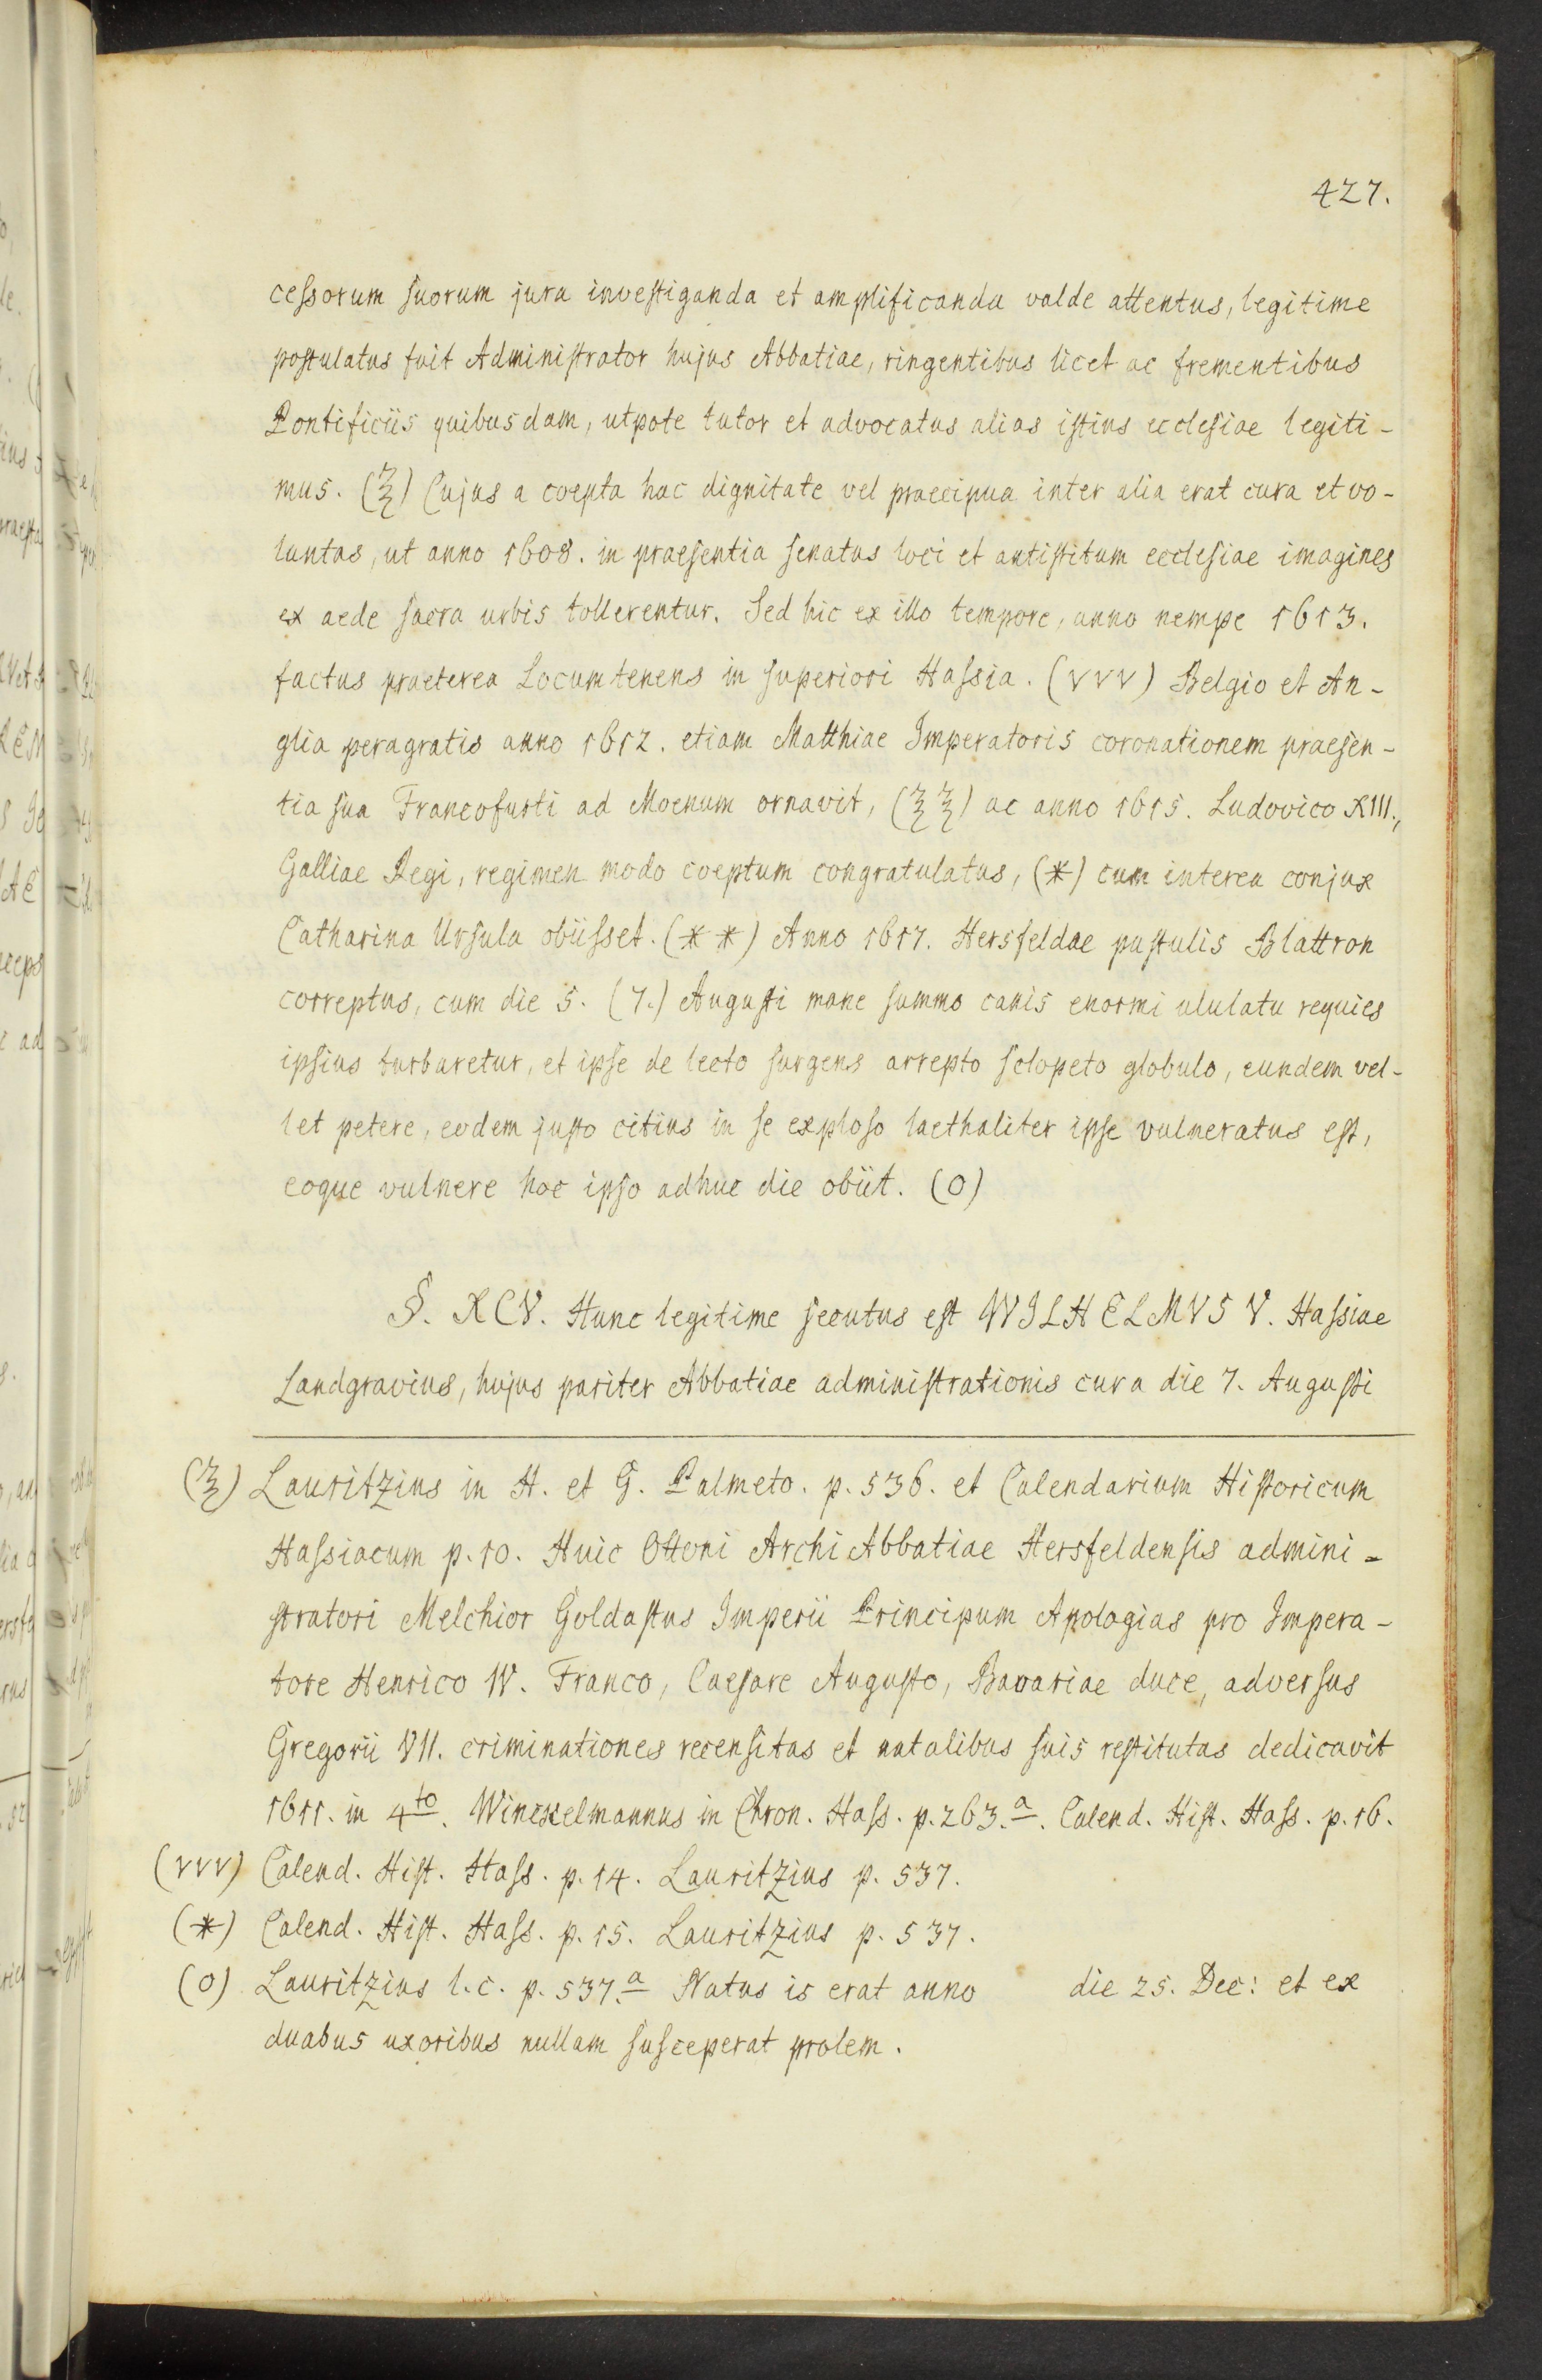 427.
cessorum suorum jura investiganda et amplificanda valde attentus, legitime
postulatus fuit Administrator hujus Abbatiae, ringentibus licet ac frementibus
Pontificiis quibusdam, utpote tutor et advocatus alias istius ecclesiae legiti-
mus. (ξ) Cujus a coepta hac dignitate vel praecipua inter alia erat cura et vo-
luntas, ut anno 1608. in praesentia senatus loci et antistitum ecclesiae imagines
ex aede sacra urbis tollerentur. Sed hic ex illo tempore, anno nempe 1613.
factus praeterea Locumtenens in superiori Hassia. (νν) Belgio et An-
glia peragratis anno 1612. etiam Matthiae Imperatoris coronationem praesen-
tia sua Francofurti ad Moenum ornavit, (ξξ) ac anno 1615. Ludovico XIII.,
Galliae Regi, regimen modo coeptum congratulatus, (*) cum interea conjux
Catharina Ursula obiisset. (**) Anno 1617. Hersfeldae pustulis Blattron
correptus, cum die 5. (7.) Augusti mane summo canis enormi ululatu requies
ipsius turbaretur, et ipse de lecto surgens arrepto sclopeto globulo, eundem vel-
let petere, eodem justo citius in se exploso laethaliter ipse vulneratus est,
eoque vulnere hoc ipso adhuc die obiit. (o)
§. XCV. Hunc legitime secutus est WILHELMVS V. Hassiae
Landgravius, hujus pariter Abbatiae administrationis cura die 7. Augusti
(ξ) Lauritzius in H. et G. Palmeto. p. 536. et Calendarium Historicum
Hassiacum p. 10. Huic Ottoni Archi Abbatiae Hersfeldensis admini-
stratori Melchior Goldastus Imperii Principum Apologias pro Impera-
tore Henrico IV. Franco, Caesare Augusto, Bavariae duce, adversus
Gregorii VII. criminationes recensitas et natalibus suis restitutas dedicavit
1611. in 4to. Winckelmannus in Chron. Hass. p. 263. a. Calend. Hist. Hass. p. 16.
(ννν) Calend. Hist. Hass. p. 14. Lauritzius p. 537.
(*) Calend. Hist. Hass. p. 15. Lauritzius p. 537.
(o) Lauritzius l. c. p. 537. a Natus is erat anno die 25. Dec: et ex
duabus uxoribus nullam susceperat prolem.